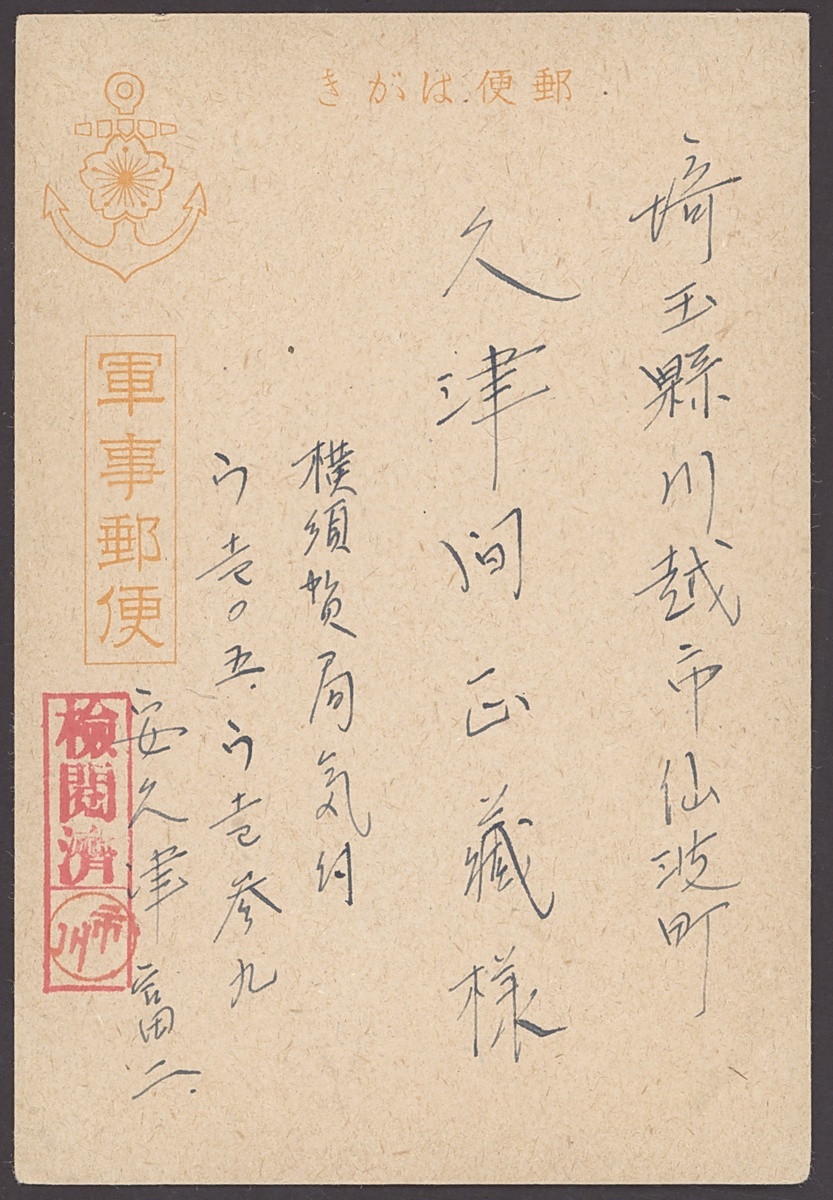 郵便はがき
埼玉縣川越市仙波町
久津間正藏様
横須賀局気付
ウ壱〇五.ウ壱参九
安久津富二
軍事郵便
検閲済
市川